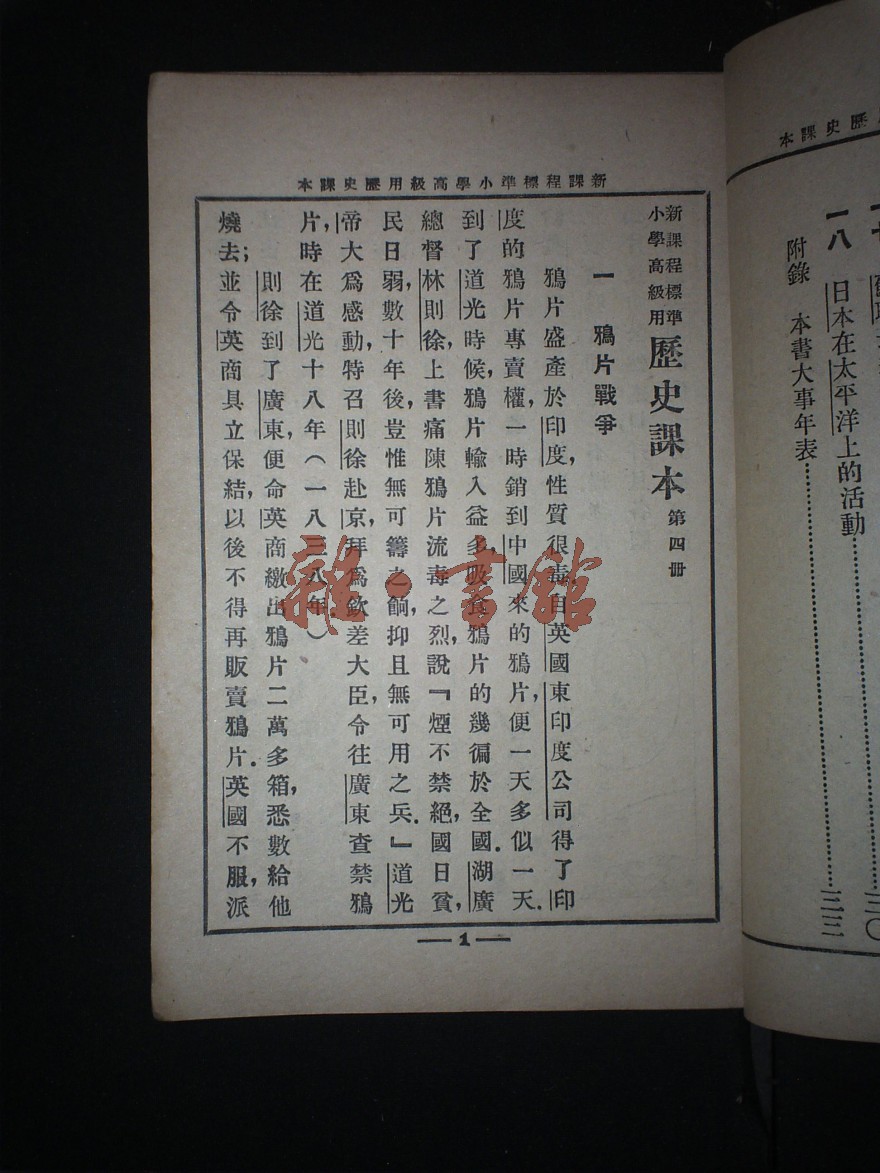 本課史歷用級高學小準標程課新
新課程標準
小學高級用
歷史課本 第四冊
一 鴉片戰爭
鴉片盛產於印度,性質很毒自英國東印度公司得了印
度的鴉片專賣權,一時銷到中國來的鴉片,便一天多似一天.
到了道光時候,鴉片輸入益多,吸食鴉片的幾徧於全國.湖廣
總督林則徐,上書痛陳鴉片流毒之烈,說『煙不禁絕,國日貧,
民日弱,數十年後,豈惟無可籌之餉,抑且無可用之兵.』道光
帝大爲感動,特召則徐赴京,拜爲欽差大臣,令往廣東查禁鴉
片,時在道光十八年(一八三八年.)
則徐到了廣東,便命英商繳出鴉片二萬多箱,悉數給他
燒去;並令英商具立保結,以後不得再販賣鴉片.英國不服,派
1
歷史課本
三〇
一八 日本在太平洋上的活動……三三
附錄 本書大事年表……
雜·書館